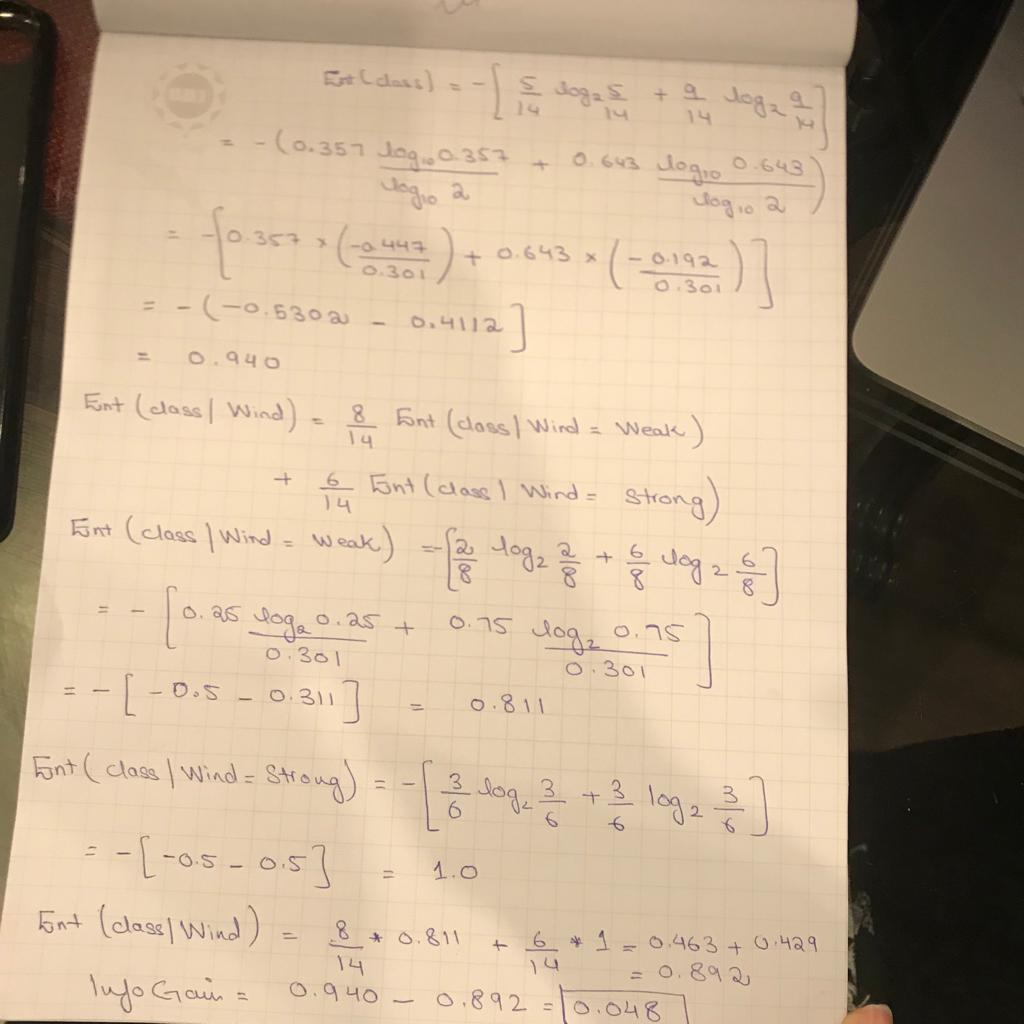 Ent(class) = -[5/14 log₂ 5/14 + 9/14 log₂ 9/14]
= -(0.357 log₁₀ 0.357 / log₁₀ 2 + 0.643 log₁₀ 0.643 / log₁₀ 2)
= -[0.357 × (-0.447/0.301) + 0.643 × (-0.192/0.301)]
= -(-0.5302 - 0.4112]
= 0.940
Ent (class | Wind) = 8/14 Ent (class | Wind = Weak)
+ 6/14 Ent (class | Wind = Strong)
Ent (class | Wind = Weak) = -[2/8 log₂ 2/8 + 6/8 log₂ 6/8]
= -[0.25 log₂ 0.25 / 0.301 + 0.75 log₂ 0.75 / 0.301]
= -[-0.5 - 0.311] = 0.811
Ent (class | Wind = Strong) = -[3/6 log₂ 3/6 + 3/6 log₂ 3/6]
= -[-0.5 - 0.5] = 1.0
Ent (class | Wind) = 8/14 * 0.811 + 6/14 * 1 = 0.463 + 0.429
= 0.892
Info Gain = 0.940 - 0.892 = 0.048